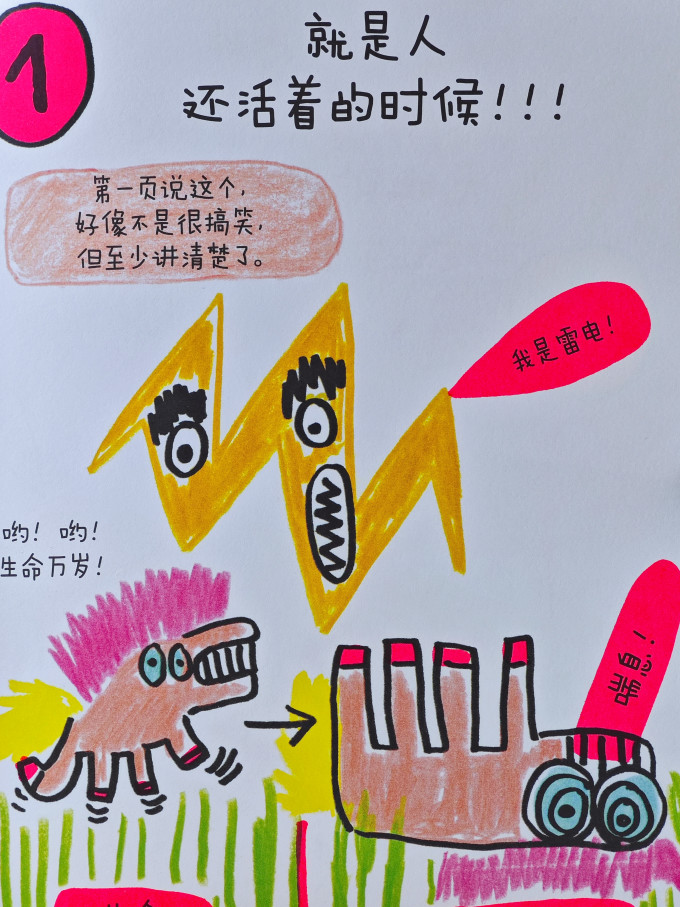 1
就是人
还活着的时候!!!
第一页说这个,
好像不是很搞笑,
但至少讲清楚了。
我是雷电!
哟! 哟!
生命万岁!
喘息!